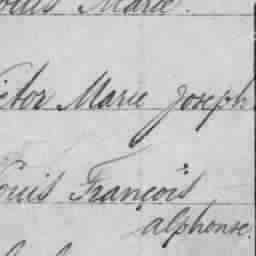 Marie.
Victor Marie Joseph
Louis François
alphonse.